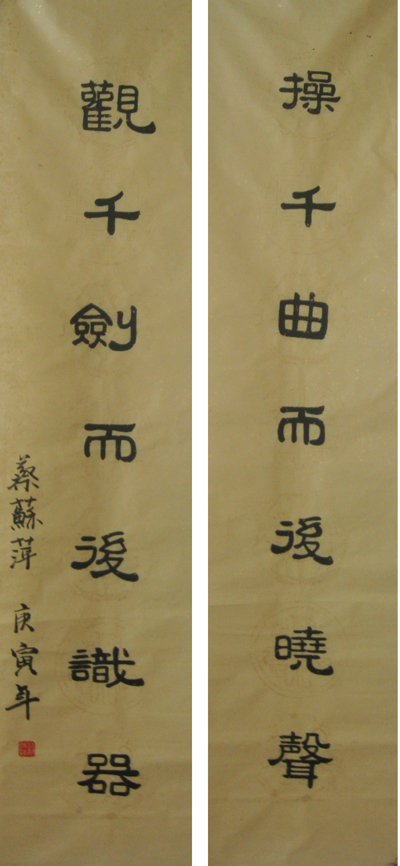 操千曲而後曉聲
觀千劍而後識器
蔡蘇萍 庚寅年